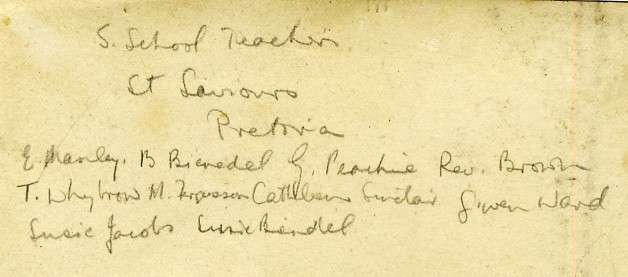 S. School Teachers
St Saviours
Pretoria
E. Manley. B Bienedel G. Rev. Brown
T. Whybrow M. Fergusson Cathleen Sinclair Gwen Ward
Susie Jacobs